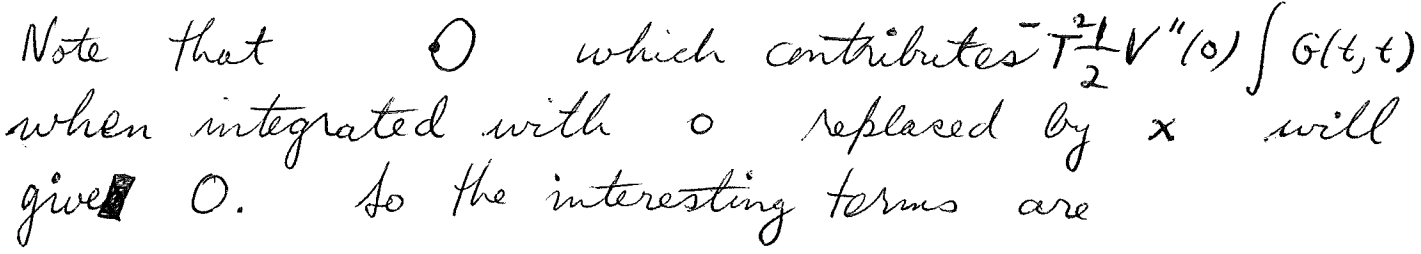 Note that which contributes - T² 1/2 V"(0) ∫ G(t,t)
when integrated with 0 replaced by x will
give 0. So the interesting terms are